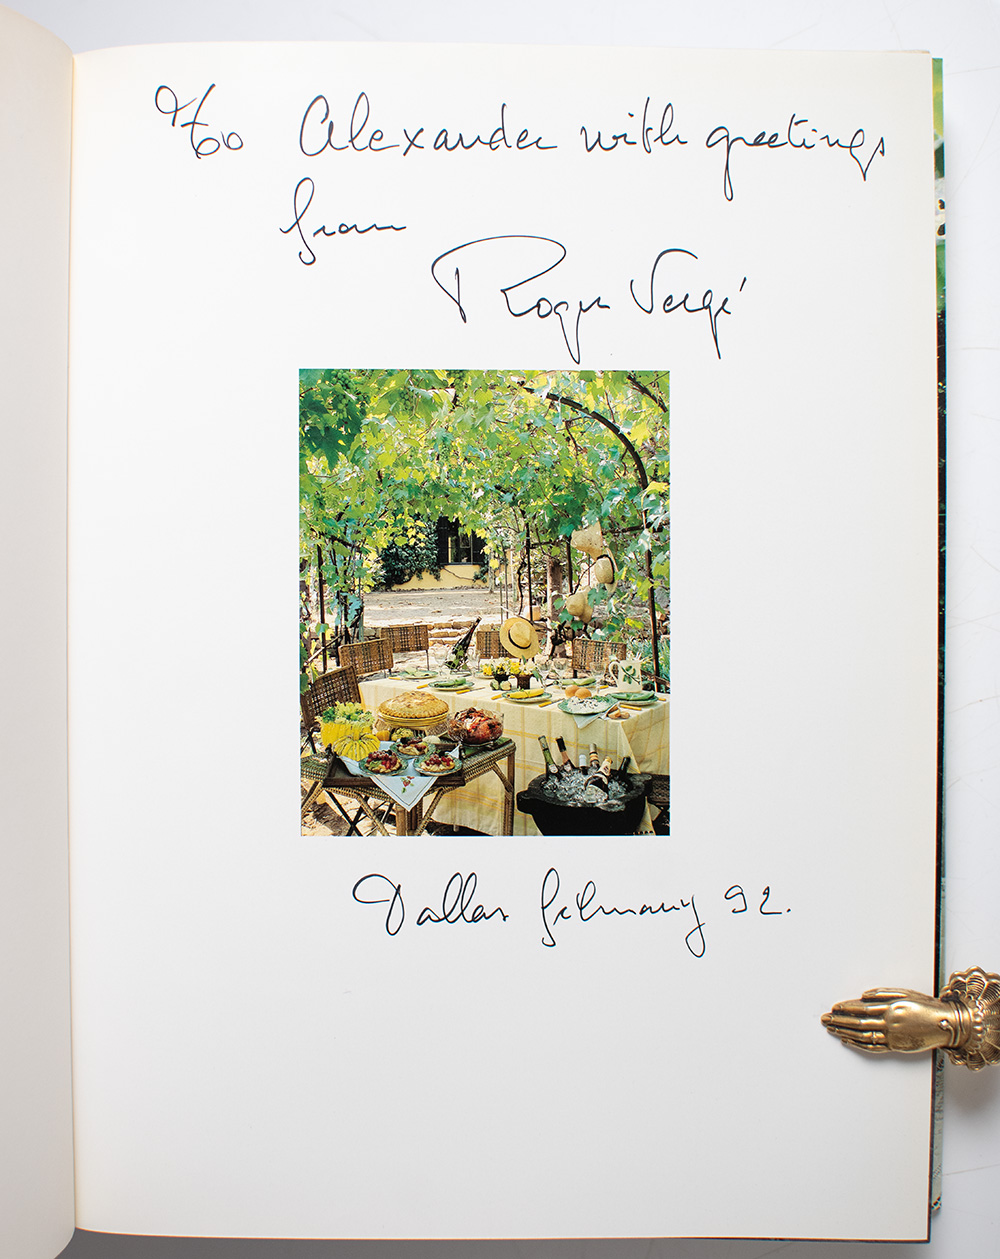 Alexander with greetings
from
Roger Vergé
Dallas February 92.